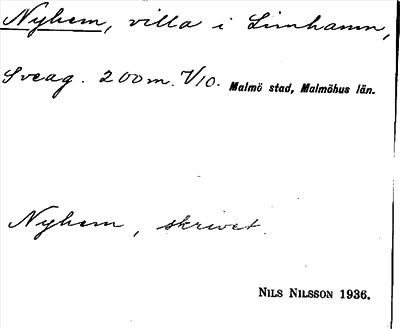 Nyhem, villa i Limhamn,
Sveag. 200 m. V/10. Malmö stad, Malmöhus län.
Nyhem, skrivet.
NILS NILSSON 1936.